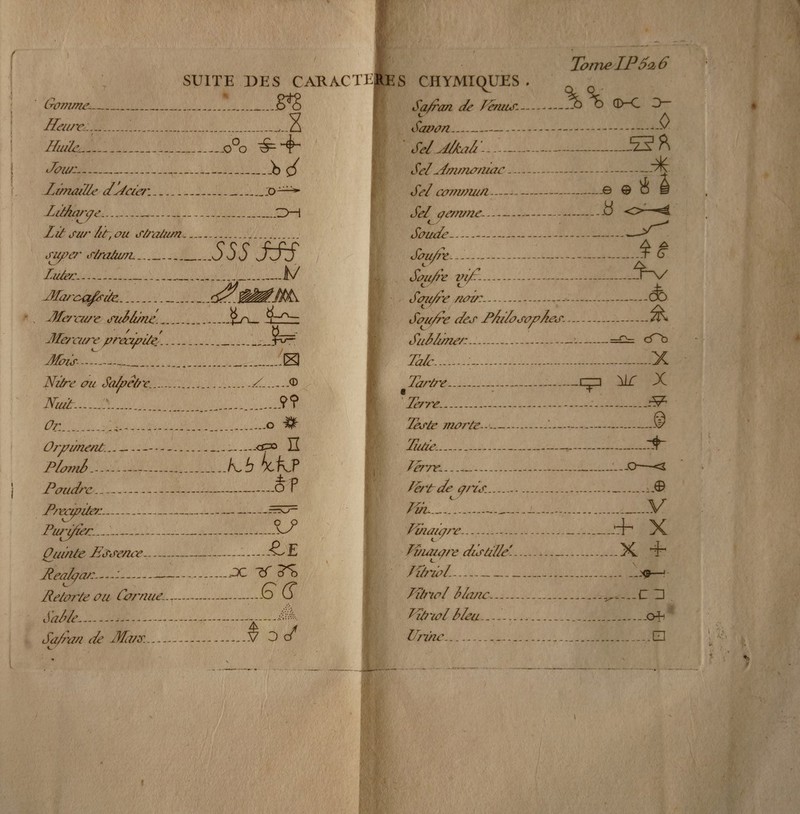 Tome I P 526
SUITE DES CARACTERES CHYMIQUES.
Gomme
Heure
Huile
Jour
Limaille d'Acier
Litharge
Lit sur lit, ou stratum
super stratum SSS fff
Luter
Marcassite
Mercure sublimé
Mercure précipité
Mois
Nitre ou Salpêtre
Nuit
Or
Orpiment
Plomb
Poudre
Precipiter
Purifier
Quinte Essence QE
Realgar
Retorte ou Cornue
Sable
Safran de Mars
Safran de Venus
Savon
Sel Alkali
Sel Ammoniac
Sel commun
Sel gemme
Soude
Soufre
Soufre vif
Soufre noir
Soufre des Philosophes
Sublimer
Talc
Tartre
Terre
Teste morte
Tutie
Verre
Vert de gris
Vin
Vinaigre
Vinaigre distillé
Vitriol
Vitriol blanc
Vitriol bleu
Urine